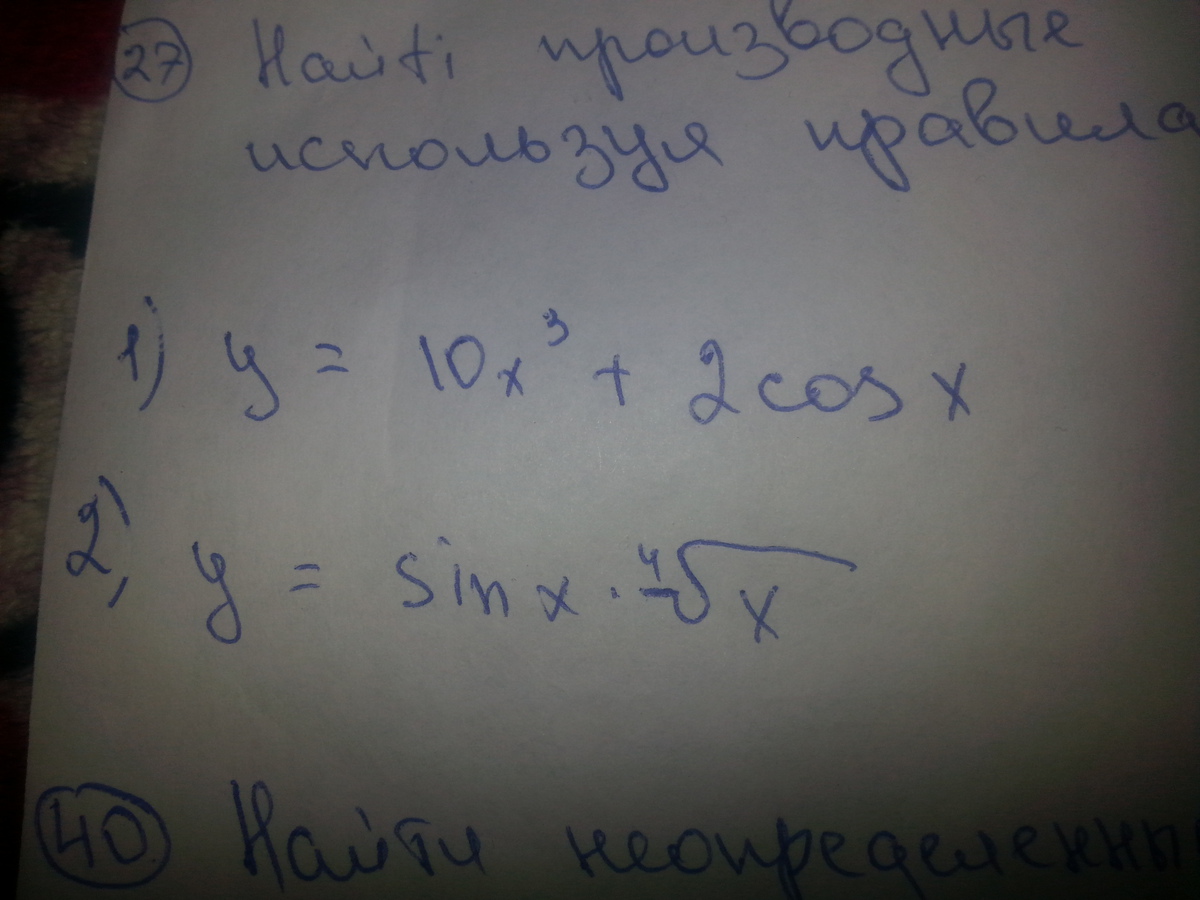 27 Найti производные
используя правила
1) y = 10x³ + 2 cos x
2) y = sin x · ⁴√x
40 Найти неопределенны